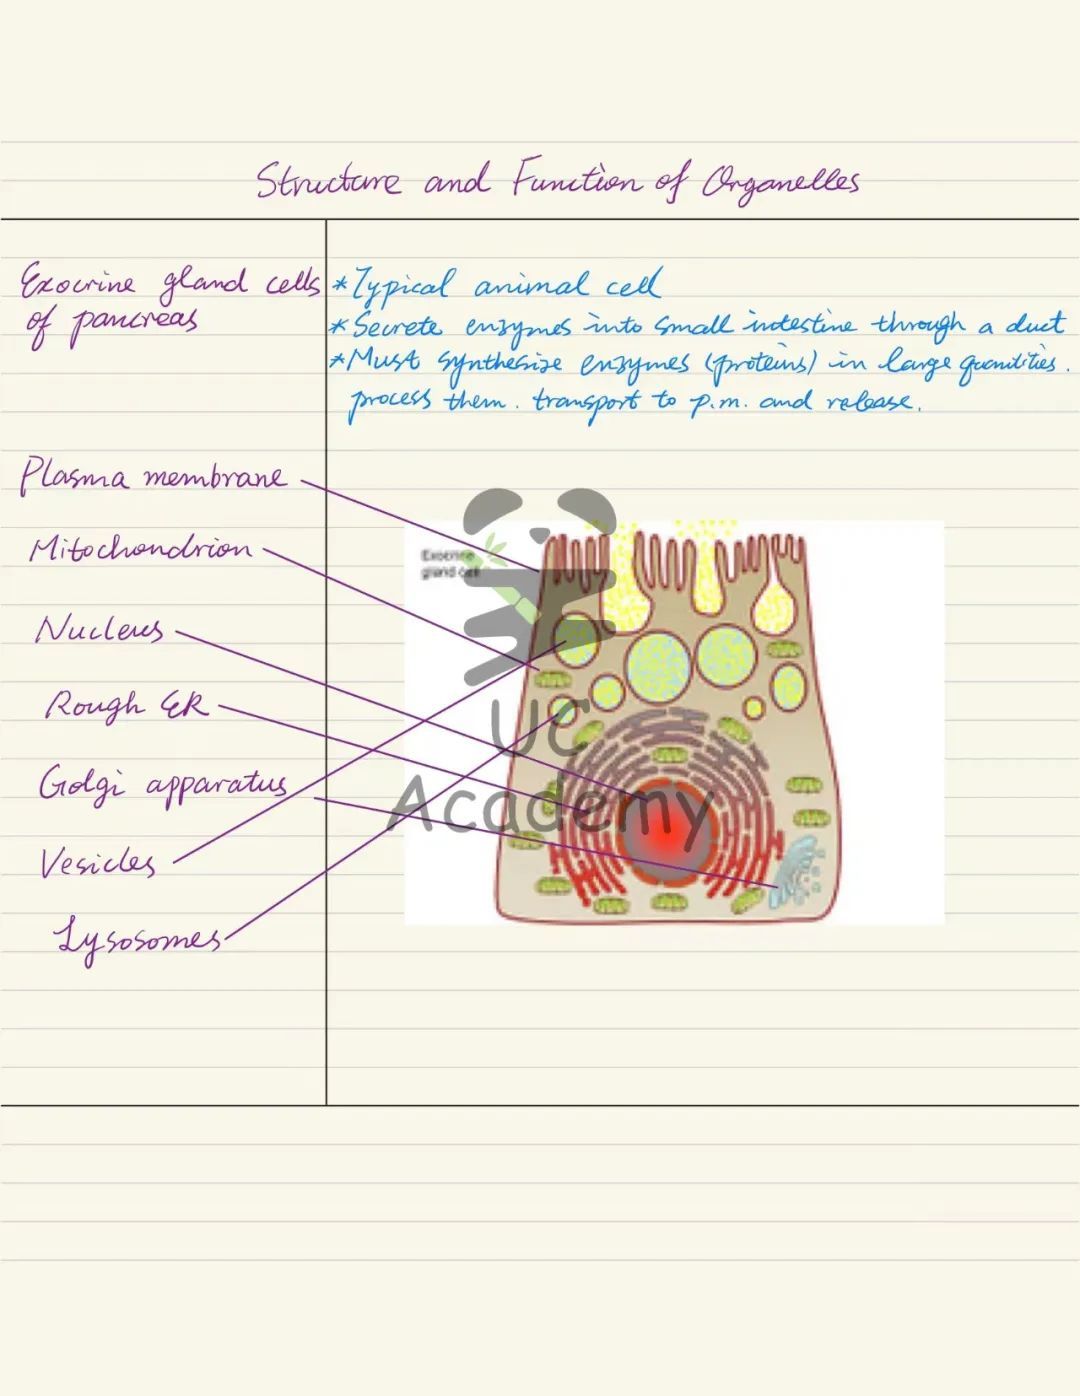 Structure and Function of Organelles
Exocrine gland cells
of pancreas
* Typical animal cell
* Secrete enzymes into small intestine through a duct
* Must synthesize enzymes (proteins) in large quantities.
process them. transport to p.m. and release.
Plasma membrane
Mitochondrion
Nucleus
Rough ER
Golgi apparatus
Vesicles
Lysosomes
Exocrine
gland cell
UC
Academy